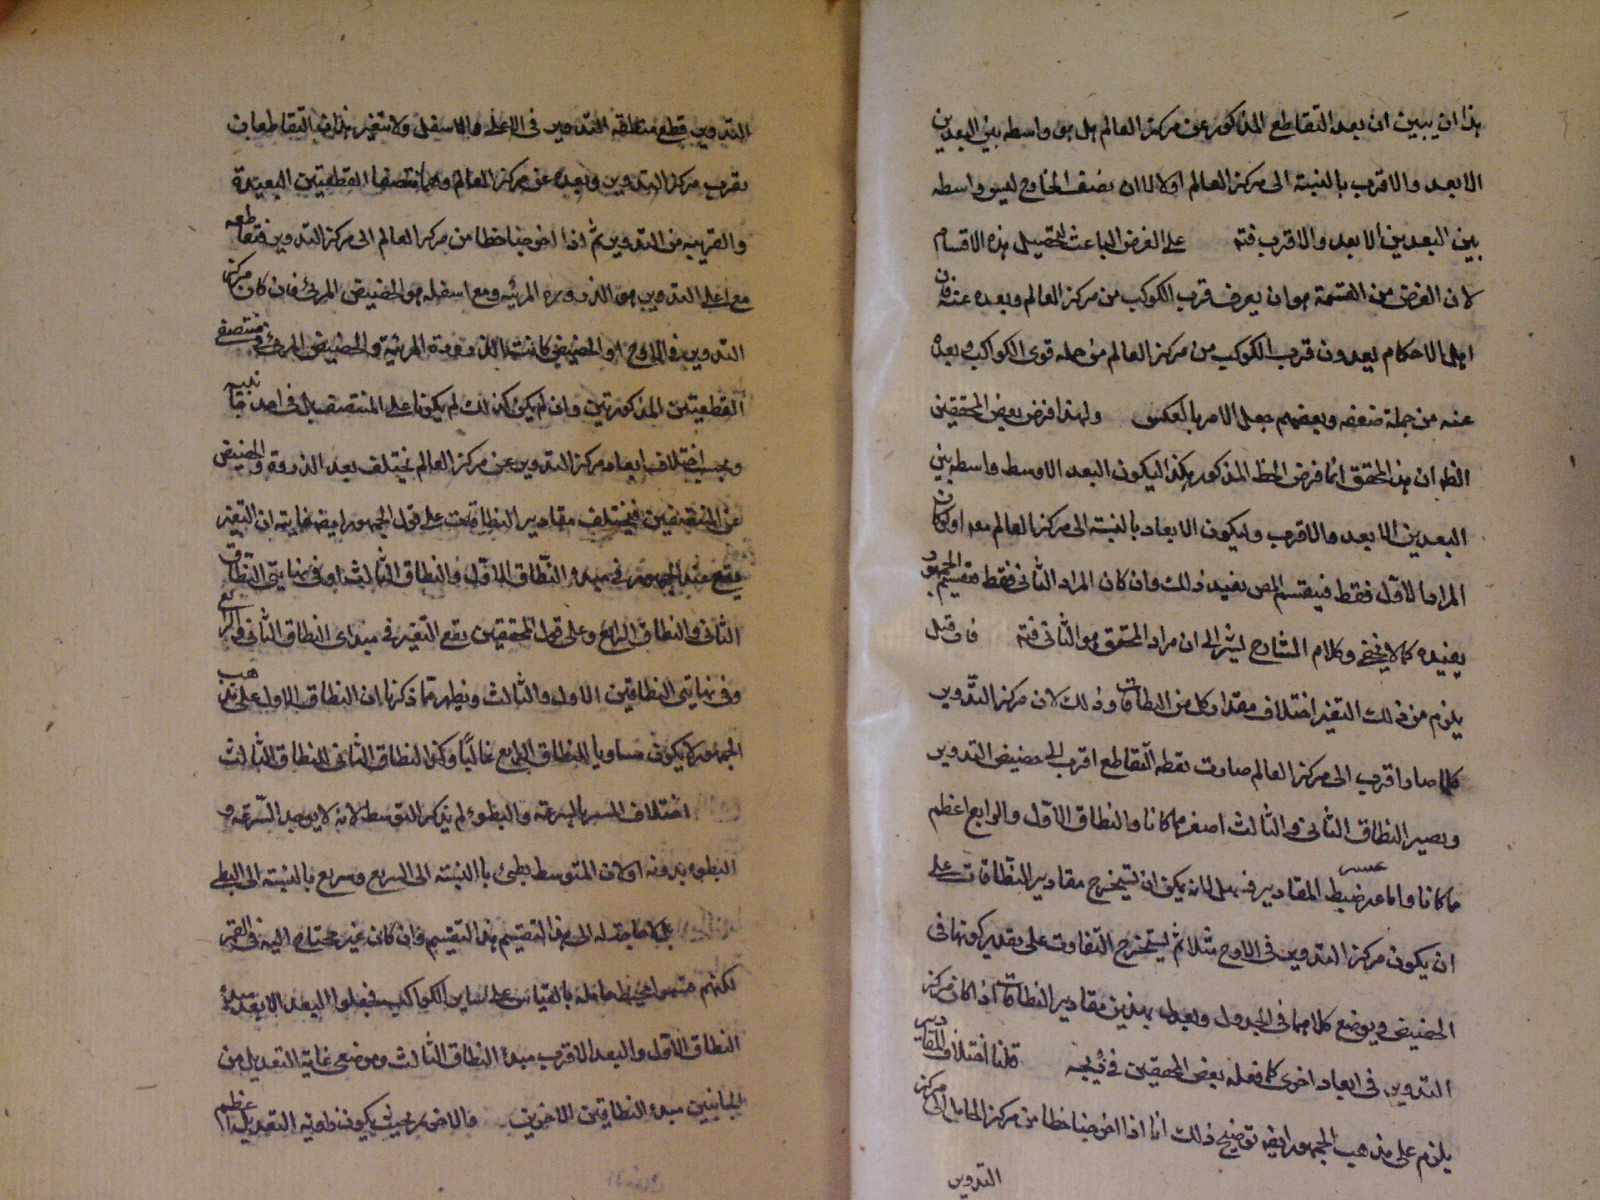 هذا ان يبين ان بعد التقاطع المذكور عن مركز العالم هل هو واسطه بين البعدين
الابعد والاقرب بالنسبة الى مركز العالم اولا لان نصف الخارج ليس واسطه
بين البعدين الابعد والاقرب فتم على الغرض الباعث لتحصيل هذه الاقسام
لان الغرض من القسمة هو ان يعرف قرب الكوكب من مركز العالم وبعده عنه فان
اهل الاحكام يعدون قرب الكوكب من مركز العالم من جمله قوى الكواكب وبعده
عنه من جملة ضعفه وبعضهم جعل الامر بالعكس ولهذا فرض بعض المحققين
الظ ان هذا المحقق انما فرض الخط المذكور هكذا ليكون البعد الاوسط واسطه بين
البعدين الابعد والاقرب وليكون الابعاد بالنسبة الى مركز العالم معه او كان
المراد الاول فقط فبتقسيم المص يفيد ذلك وان كان المراد الثانى فقط فتقسيم الجمهور
يفيده كما لا يخفى وكلام الشارح يشير الى ان مراد المحقق هو الثانى فتم فان قيل
يلزم من ذلك التغير اختلاف مقدار كل من النطاقات وذلك لان مركز التدوير
كلما صار اقرب الى مركز العالم صارت نقطه التقاطع اقرب الى حضيض التدوير
ويصير النطاق الثانى والثالث اصغر مما كانا والنطاق الاول والرابع اعظم
مما كانا واما عسر ضبط المقادير فسهل لانه يمكن ان يستخرج مقادير النطاقات على
ان يكون مركز التدوير فى الاوج مثلا ثم يستخرج التفاوت على تقدير كونها فى
الحضيض ويوضع كلاهما فى الجدول ويعدل بهذين مقادير النطاقات اذا كان مركز
التدوير فى ابعاد اخرى كما فعله بعض المحققين فى زيجه قلنا اختلاف المقادير
يلزم على مذهب الجمهور ايضا توضيح ذلك انا اذا اخرجنا خطا من مركز الحامل الى مركز
التدوير
التدوير قطع منطقه التدوير فى الاعلى والاسفل ولا تتغير هذان التقاطعان
بقرب مركز التدوير وبعده عن مركز العالم وهما منتصفا القطعتين البعيدة
والقريبه من التدوير ثم اذا اخرجنا خطا من مركز العالم الى مركز التدوير فتقاطعه
مع اعلى التدوير هو الذروة المرئيه ومع اسفله هو الحضيض المرئى فان كان مركز
التدوير فى الاوج او الحضيض كانت الذروة المرئية والحضيض المرئى منتصفى
القطعتين المذكورتين وان لم يكن كذلك لم يكونا على المنتصف بل فى احد جانبيه
وبحسب اختلاف ابعاد مركز التدوير عن مركز العالم يختلف بعد الذروة والحضيض
عن المنتصفين فيختلف مقادير النطاقات على قول الجمهور ايضا غايته ان التغير
يقع عند الجمهور فى مبدء النطاق الاول والنطاق الثالث او فى نهايتى النطاق
الثانى والنطاق الرابع وعلى قول المحققين يقع التغير فى مبداى النطاق الثانى والرابع
وفى نهايتى النطاقين الاول والثالث ويظهر مما ذكرنا ان النطاق الاول على مذهب
الجمهور لا يكون مساويا للنطاق الرابع غالبا وكذا النطاق الثانى للنطاق الثالث
اختلاف السير بالسرعة والبطوء لم يذكر التوسط لانه لا يوجد السرعة و
البطوء بدونه او لان المتوسط بطئ بالنسبة الى السريع وسريع بالنسبة الى البطئ
لا حاجة له الى هذا التقسيم هذا التقسيم وان كان غير محتاج اليه فى القمر
لكنهم قسموا محيط حامله بالقياس على ساير الكواكب فجعلوا البعد الابعد مبدء
النطاق الاول والبعد الاقرب مبدء النطاق الثالث وموضعى غاية التعديل من
الجانبين مبدء النطاقين الاخرين والاخر بحيث يكون زاوية التعديل اعظم